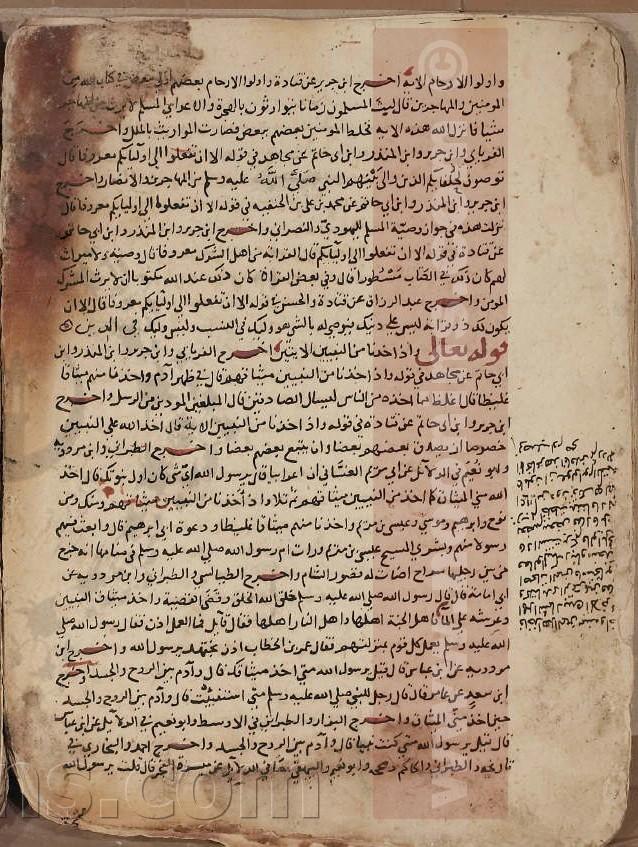 واولوا الارحام الاية اخرج ابن جرير عن قتادة واولوا الارحام بعضهم اولى ببعض في كتاب الله من
المومنين والمهاجرين قال لبث المسلمون زمانا يتوارثون بالهجرة والاعرابي المسلم لا يرث من المهاجر
شيا فانزل الله هذه الاية فخلط المومنين بعضهم ببعض فصارت المواريث بالملل واخرج
الفريابي وابن جرير وابن المنذر وابن ابي حاتم عن مجاهد في قوله الا ان تفعلوا الى اوليايكم معروفا قال
توصون لحلفايكم الذين والى بينهم النبي صلى الله عليه وسلم من المهاجرين والانصار واخرج
ابن جرير وابن المنذر وابن ابي حاتم عن محمد بن علي بن الحنفيه في قوله الا ان تفعلوا الى اوليايكم معروفا قال
نزلت هذه في جواز وصية المسلم لليهودي والنصراني واخرج ابن جرير وابن المنذر وابن ابي حاتم
عن قتادة في قوله الا ان تفعلوا الى اوليايكم قال القرابة من اهل الشرك معروفا قال وصية ولا ميراث
لهم كان ذلك في الكتاب مسطورا قال وفي بعض القراة كان ذلك عند الله مكتوبا ان لا يرث المشرك
المومن واخرج عبد الرزاق عن قتادة والحسن في قوله الا ان تفعلوا الى اوليايكم معروفا قال الا ان
يكون لك ذو قرابة ليس على دينك فتوصي له بالشي هو وليك في النسب وليس وليك في الدين
قوله تعالى واذ اخذنا من النبيين الايتين اخرج الفريابي وابن جرير وابن المنذر وابن
ابي حاتم عن مجاهد في قوله واذ اخذنا من النبيين ميثاقهم قال في ظهر آدم واخذنا منهم ميثاقا
غليظا قال اغلظ مما اخذه من الناس ليسال الصادقين قال المبلغين المودين من الرسل واخرج
ابن جرير وابن ابي حاتم عن قتادة في قوله واذ اخذنا من النبيين الاية قال اخذ الله على النبيين
خصوصا ان يصدق بعضهم بعضا وان يتبع بعضهم بعضا واخرج الطبراني وابن مردويه
وابو نعيم في الدلايل عن ابي مريم الغساني ان اعرابيا قال يرسول الله اي شي كان اول نبوتك قال اخذ
الله مني الميثاق كما اخذ من النبيين ميثاقهم ثم تلا واذ اخذنا من النبيين ميثاقهم ومنك ومن
نوح وابرهيم وموسى وعيسى بن مريم واخذنا منهم ميثاقا غليظا ودعوة ابي ابرهيم قال وابعث فيهم
رسولا منهم وبشرى المسيح عيسى بن مريم ورات ام رسول الله صلى الله عليه وسلم في منامها انه خرج
من بين رجليها سراج اضات له قصور الشام واخرج الطيالسي والطبراني وابن مردويه عن
ابي امامة قال قال رسول الله صلى الله عليه وسلم خلق الله الخلق وقضى القضية واخذ ميثاق النبيين
وعرشه على الما فاهل الجنة اهلها واهل النار اهلها فقال قايل فما العمل اذن فقال رسول الله صلى
الله عليه وسلم يعمل كل قوم لمنزلتهم فقال عمر بن الخطاب اذن نجتهد يرسول الله واخرج ابن
مردويه عن ابن عباس قال قيل يرسول الله متى اخذ ميثاقك قال وآدم بين الروح والجسد اخرج
ابن سعد عن قال قال رجل للنبي صلى الله عليه وسلم متى استنبيت قال وآدم بين الروح والجسد
حين اخذ مني الميثاق واخرج البزار والطبراني في الاوسط وابو نعيم في الدلايل عن ابن عباس
قال قيل يرسول الله متى كنت نبيا قال وآدم بين الروح والجسد واخرج احمد والبخاري في
تاريخه والطبراني والحاكم وصححه وابو نعيم والبيهقي معا في الدلايل عن ميسرة الفجر قال قلت يرسول الله
ns.com